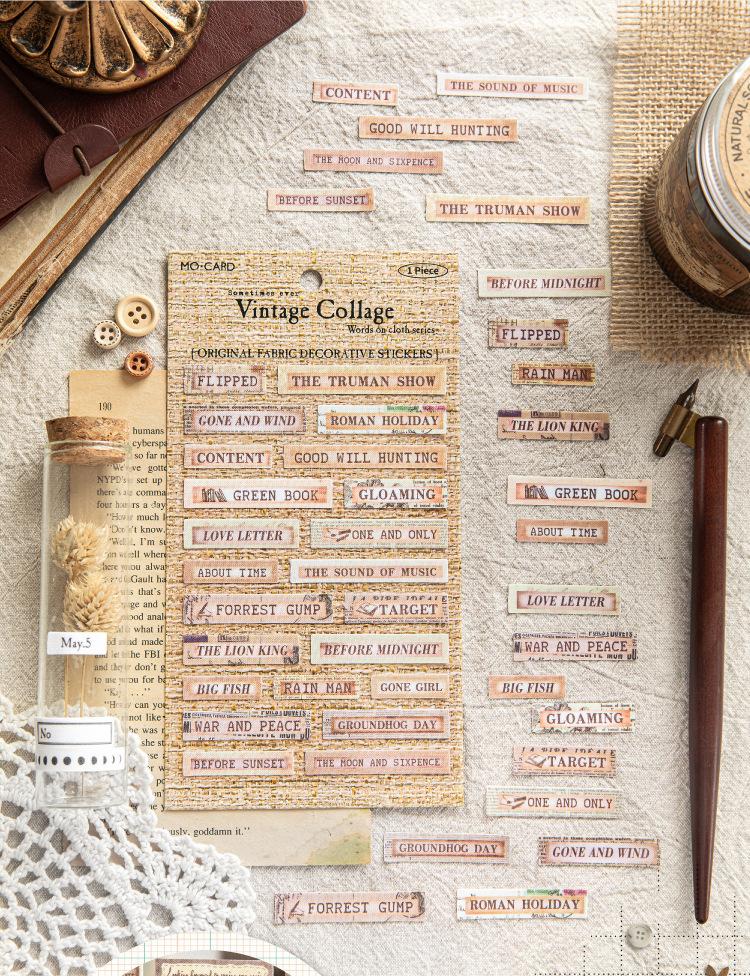 CONTENT
THE SOUND OF MUSIC
GOOD WILL HUNTING
THE MOON AND SIXPENCE
BEFORE SUNSET
THE TRUMAN SHOW
NATURAL S
MO·CARD
1 Piece
Sometimes over
Vintage Collage
Words on cloth series
[ ORIGINAL FABRIC DECORATIVE STICKERS ]
FLIPPED
THE TRUMAN SHOW
GONE AND WIND
ROMAN HOLIDAY
CONTENT
GOOD WILL HUNTING
GREEN BOOK
GLOAMING
LOVE LETTER
ONE AND ONLY
ABOUT TIME
THE SOUND OF MUSIC
FORREST GUMP
TARGET
THE LION KING
BEFORE MIDNIGHT
BIG FISH
RAIN MAN
GONE GIRL
WAR AND PEACE
GROUNDHOG DAY
BEFORE SUNSET
THE MOON AND SIXPENCE
BEFORE MIDNIGHT
FLIPPED
RAIN MAN
THE LION KING
GREEN BOOK
ABOUT TIME
LOVE LETTER
WAR AND PEACE
BIG FISH
GLOAMING
TARGET
ONE AND ONLY
GROUNDHOG DAY
GONE AND WIND
FORREST GUMP
ROMAN HOLIDAY
190
humans
cyberspa
so far n
We've gotte
NYPD's set up
there's a comma
four hours a day
"How much l
"Don't know.
"Well, I'm su
well where
Gault ha
that's
age and v
ood analy
what if
made
the FBI
they don't g
to use you for ba
can you
not like
she was
she st
May.5
No
usly, goddamn it."